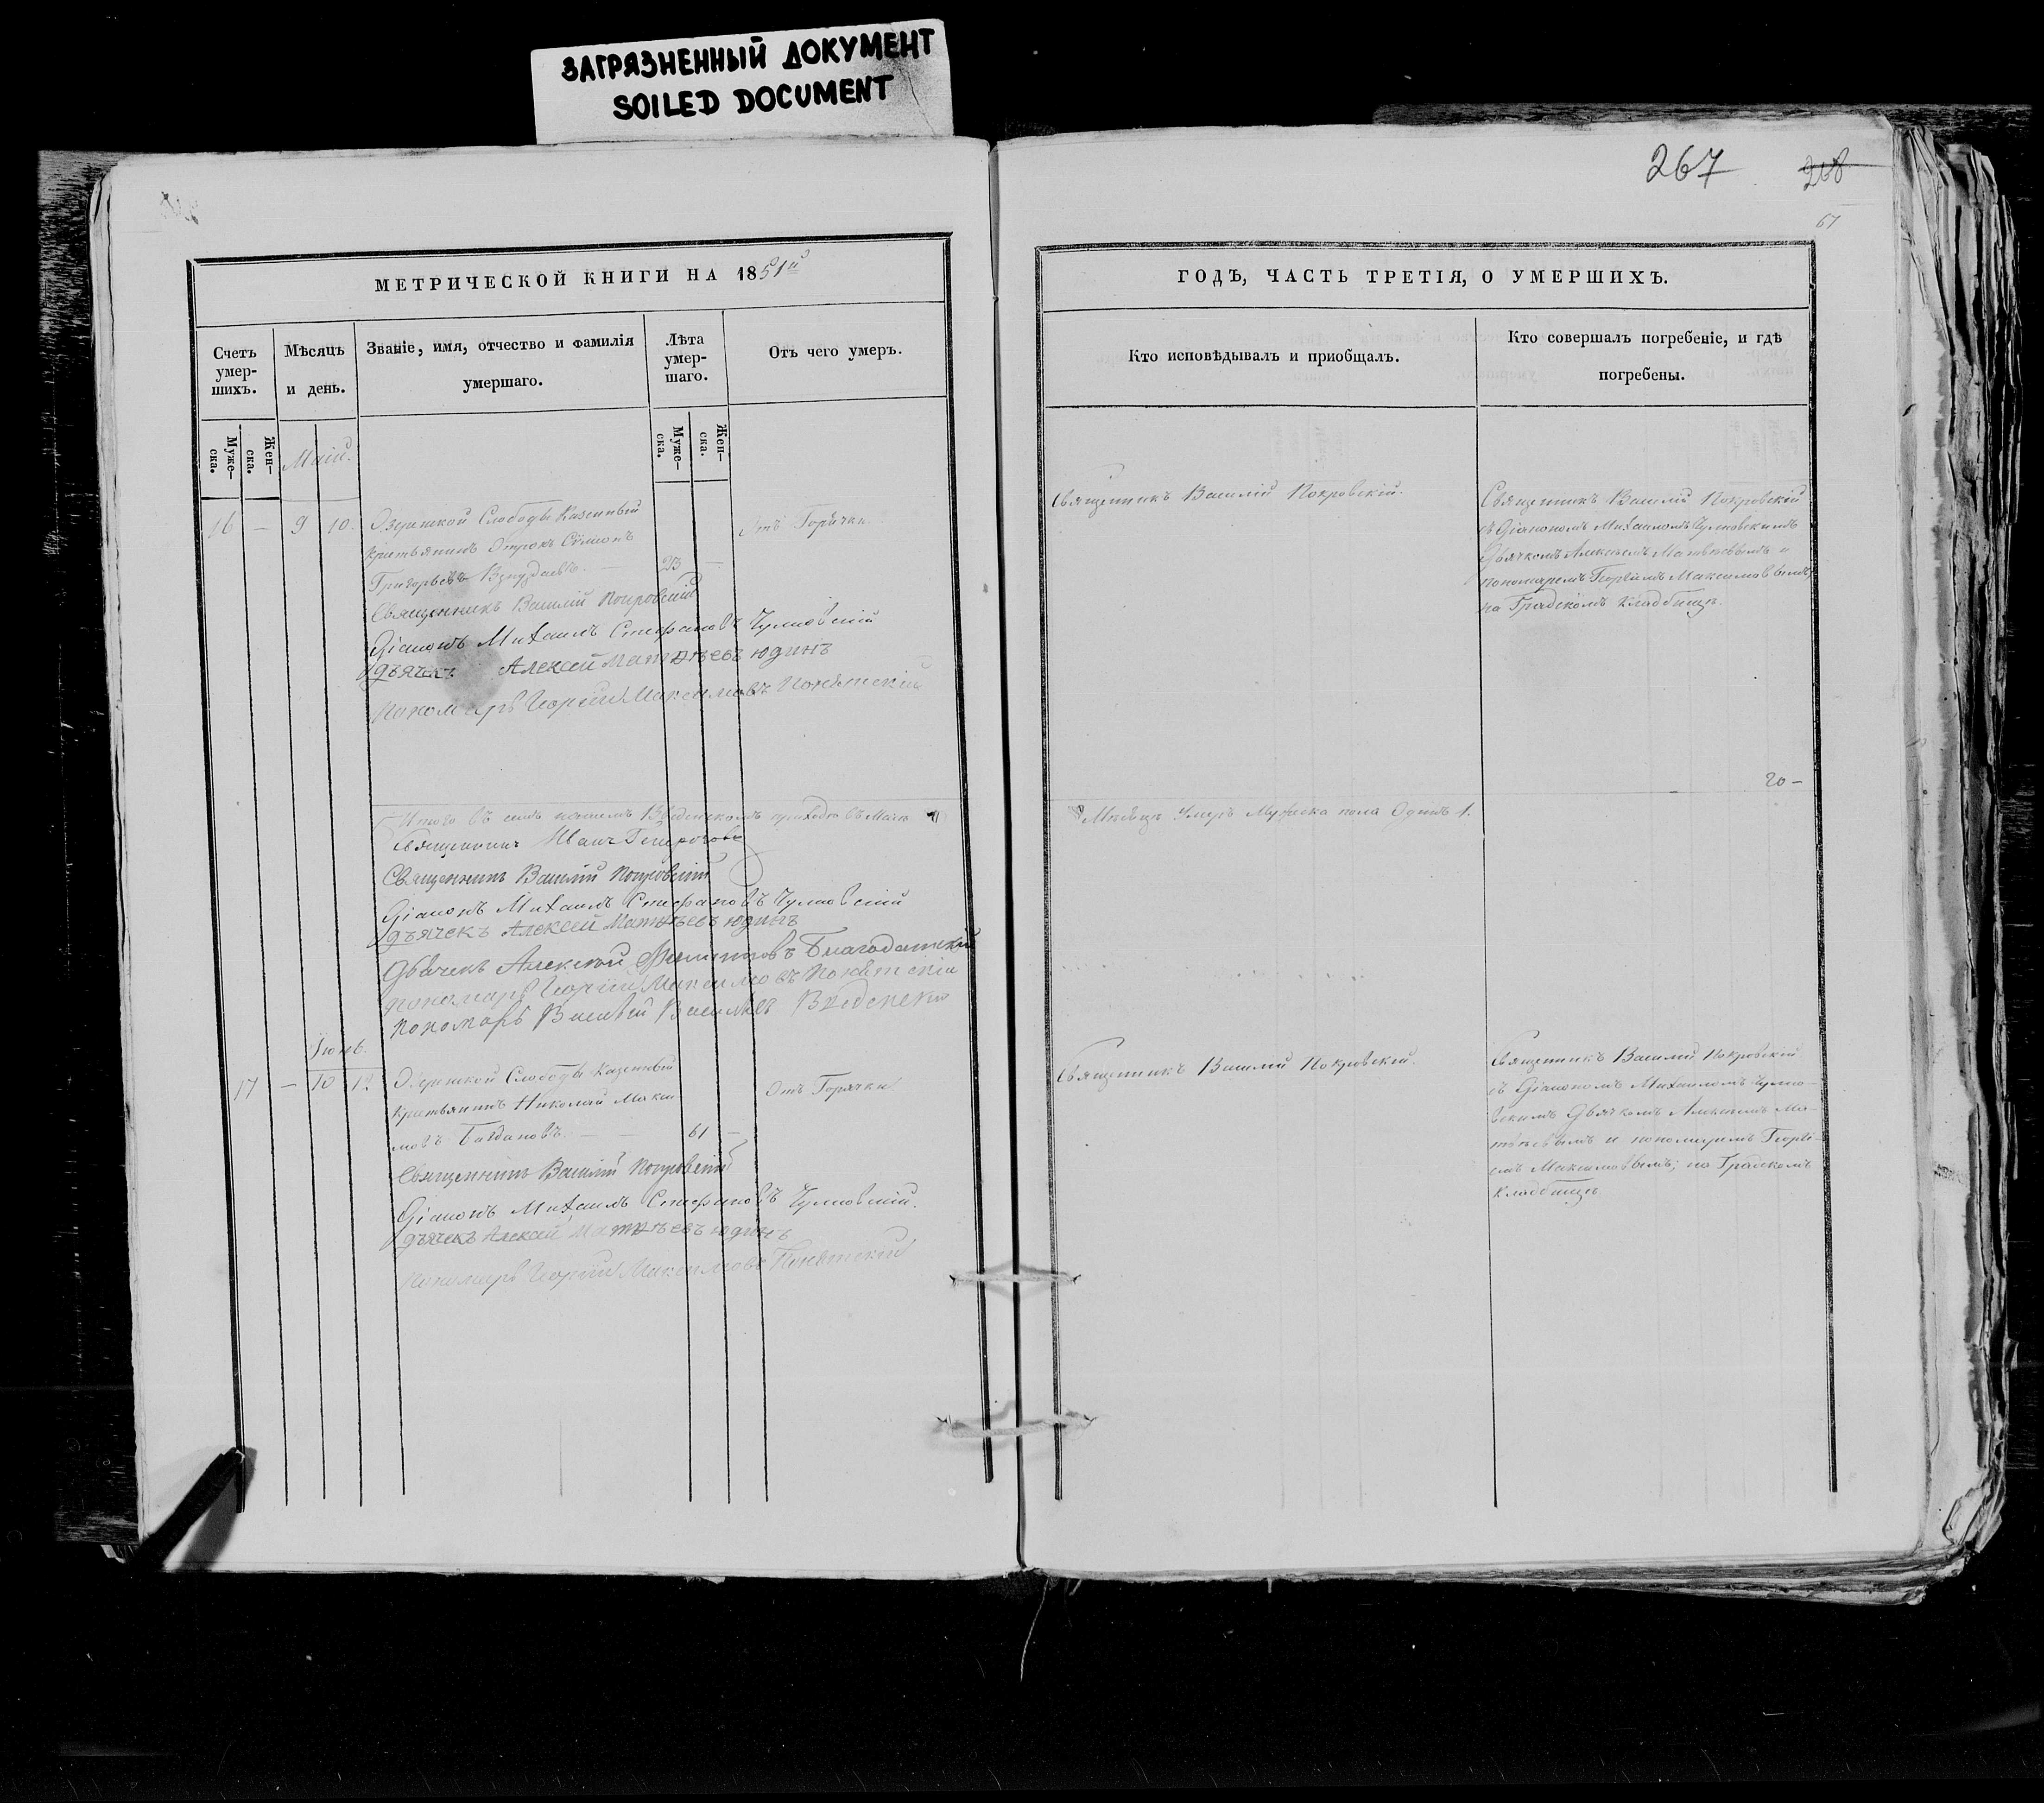 ЗАГРЯЗНЕННЫЙ ДОКУМЕНТ
SOILED DOCUMENT
267 268
67
МЕТРИЧЕСКОЙ КНИГИ НА 1851й
Счетъ умер-шихъ.
Мѣсяцъ и день.
Званіе, имя, отчество и фамилія умершаго.
Лѣта умер-шаго.
Отъ чего умеръ.
Муже-ска.
Жен-ска.
Маій.
Муже-ска.
Жен-ска.
16 — 9 10.
Озерской Слободы Казенный
Крестьянинъ Отрокъ
Григорьевъ —
Отъ Горячки
Священникъ Василій Покровскій
Діаконъ Михаилъ Стефановъ Чулковскій
дьячекъ Алексей Матвѣевъ Юдинъ
Пономарь Георгій Максимовъ
Итого въ семъ нашемъ Введенскомъ приходѣ въ Маіи
Священникъ Иванъ
Священникъ Василій Покровскій
Діаконъ Михаилъ Стефановъ Чулковскій
дьячекъ Алексей Матвѣевъ Юдинъ
Дьячекъ Алексей Филиповъ Благодатскій
пономарь Георгій Максимовъ
пономарь Василій Васильевъ Введенскій
Іюнь.
17 — 10 12
Озерской Слободы Казенный
Крестьянинъ Николай Макси
мовъ Богдановъ. — — 61 —
Отъ Горячки.
Священникъ Василій Покровскій
Діаконъ Михаилъ Стефановъ Чулковскій.
дьячекъ Алексей Матвѣевъ Юдинъ
Пономарь Георгій Максимовъ
ГОДЪ, ЧАСТЬ ТРЕТІЯ, О УМЕРШИХЪ.
Кто исповѣдывалъ и пріобщалъ.
Кто совершалъ погребеніе, и гдѣ
погребены.
Священникъ Василій Покровскій.
Священникъ Василій Покровскій
съ Діакономъ Михаиломъ Чулковскимъ
Дьячкомъ Алексеемъ Матвѣевымъ и
пономаремъ Георгіемъ Максимовымъ,
на Градскомъ Кладбищѣ.
20 —
Мѣсяцѣ Умеръ Мужеска пола Одинъ 1.
Священникъ Василій Покровскій.
Священникъ Василій Покровскій
съ Діакономъ Михаиломъ Чулко-
вскимъ Дьячкомъ Алексеемъ Ма-
твѣевымъ и пономаремъ Георгі-
емъ Максимовымъ; на Градскомъ
Кладбищѣ